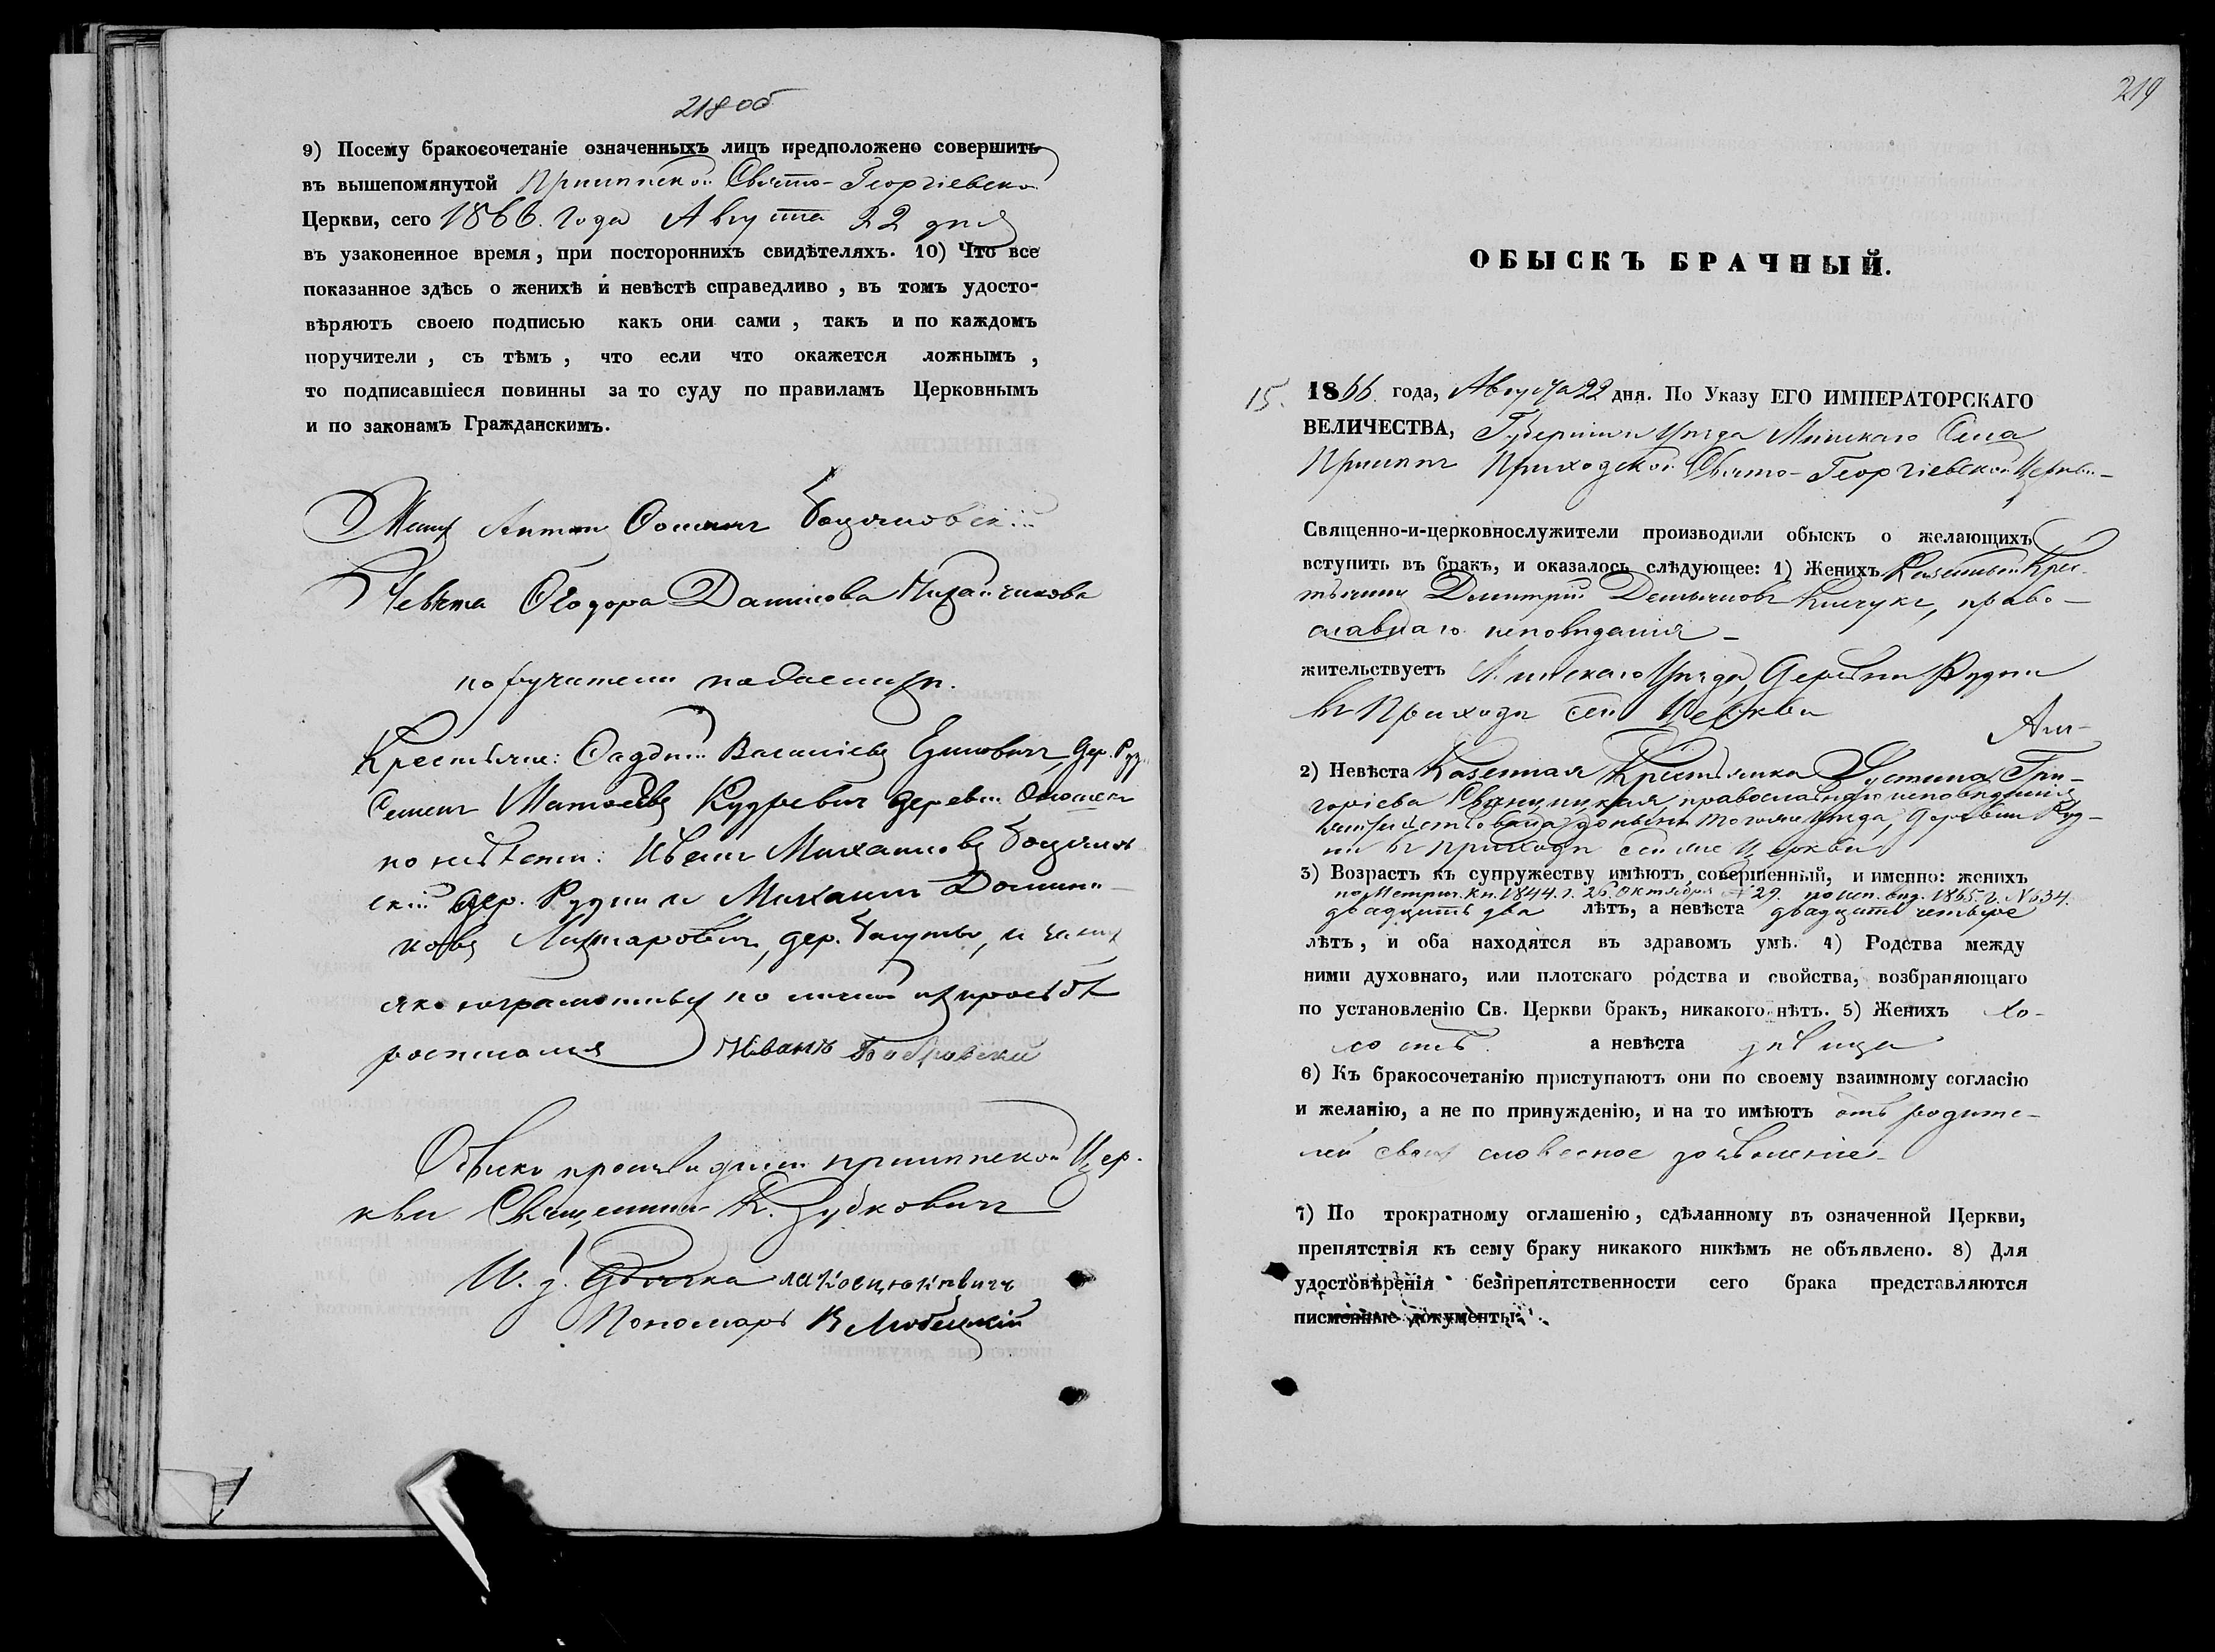 218 об
9) Посему бракосочетаніе означенныхъ лицъ предположено совершить
въ вышепомянутой Прилипской Свято-Георгіевской
Церкви, сего 1866. года Августа 22 дня
въ узаконенное время, при постороннихъ свидѣтеляхъ. 10) Что все
показанное здѣсь о женихѣ и невѣстѣ справедливо, въ томъ удосто-
вѣряютъ своею подписью какъ они сами, такъ и по каждомъ
поручители, съ тѣмъ, что если что окажется ложнымъ,
то подписавшіеся повинны за то суду по правиламъ Церковнымъ
и по законамъ Гражданскимъ.
Женихъ Антонъ Боцяновскій
Невѣста Ѳеодора Данилова
поручители
Крестьяне: Василіевъ дер. Руд
Семенъ Матвѣевъ Кудревичъ деревни
по невѣстѣ: Иванъ Михайловъ Боцянов
скій дер. Рудни и Михаилъ Домини-
ковъ дер. и за нихъ
яко неграмотныхъ по личной ихъ просьбѣ
росписался Иванъ Бобровскій
Обыскъ производили Прилипской Цер-
кви Священникъ К. Зубковичъ
И. д. дьячка
Пономарь
219
ОБЫСКЪ БРАЧНЫЙ.
15. 1866. года, Августа 22 дня. По Указу ЕГО ИМПЕРАТОРСКАГО
ВЕЛИЧЕСТВА, Губерніи и Уѣзда Минскаго Села
Прилепъ Приходской Свято-Георгіевской Церкви
Священно-и-церковнослужители производили обыскъ о желающихъ
вступить въ бракъ, и оказалось слѣдующее: 1) Женихъ Казенный Крес-
тьянинъ Димитрій Демьяновъ право-
славнаго исповѣданія
жительствуетъ Минскаго Уѣзда, деревни Рудни
въ Приходѣ сей Церкви
2) Невѣста Казенная Крестьянка Устина Гри-
горіева православнаго исповѣданія
жительствовала донынѣ того же Уѣзда, деревни Руд-
ни въ Приходѣ сей же Церкви
3) Возрастъ къ супружеству имѣютъ совершенный, и именно: женихъ
по Метрич. Кн. 1844. г. 26 Октября № 29. по исп. вѣд. 1865. г. № 34.
двадцать два лѣтъ, а невѣста двадцать четыре
лѣтъ, и оба находятся въ здравомъ умѣ. 4) Родства между
ними духовнаго, или плотскаго родства и свойства, возбраняющаго
по установленію Св. Церкви бракъ, никакого нѣтъ. 5) Женихъ хо-
лостъ а невѣста дѣвица
6) Къ бракосочетанію приступаютъ они по своему взаимному согласію
и желанію, а не по принужденію, и на то имѣютъ отъ родите-
лей своихъ словесное дозволеніе
7) По трократному оглашенію, сдѣланному въ означенной Церкви,
препятствія къ сему браку никакого никѣмъ не объявлено. 8) Для
удостовѣренія безпрепятственности сего брака представляются
писменные документы: